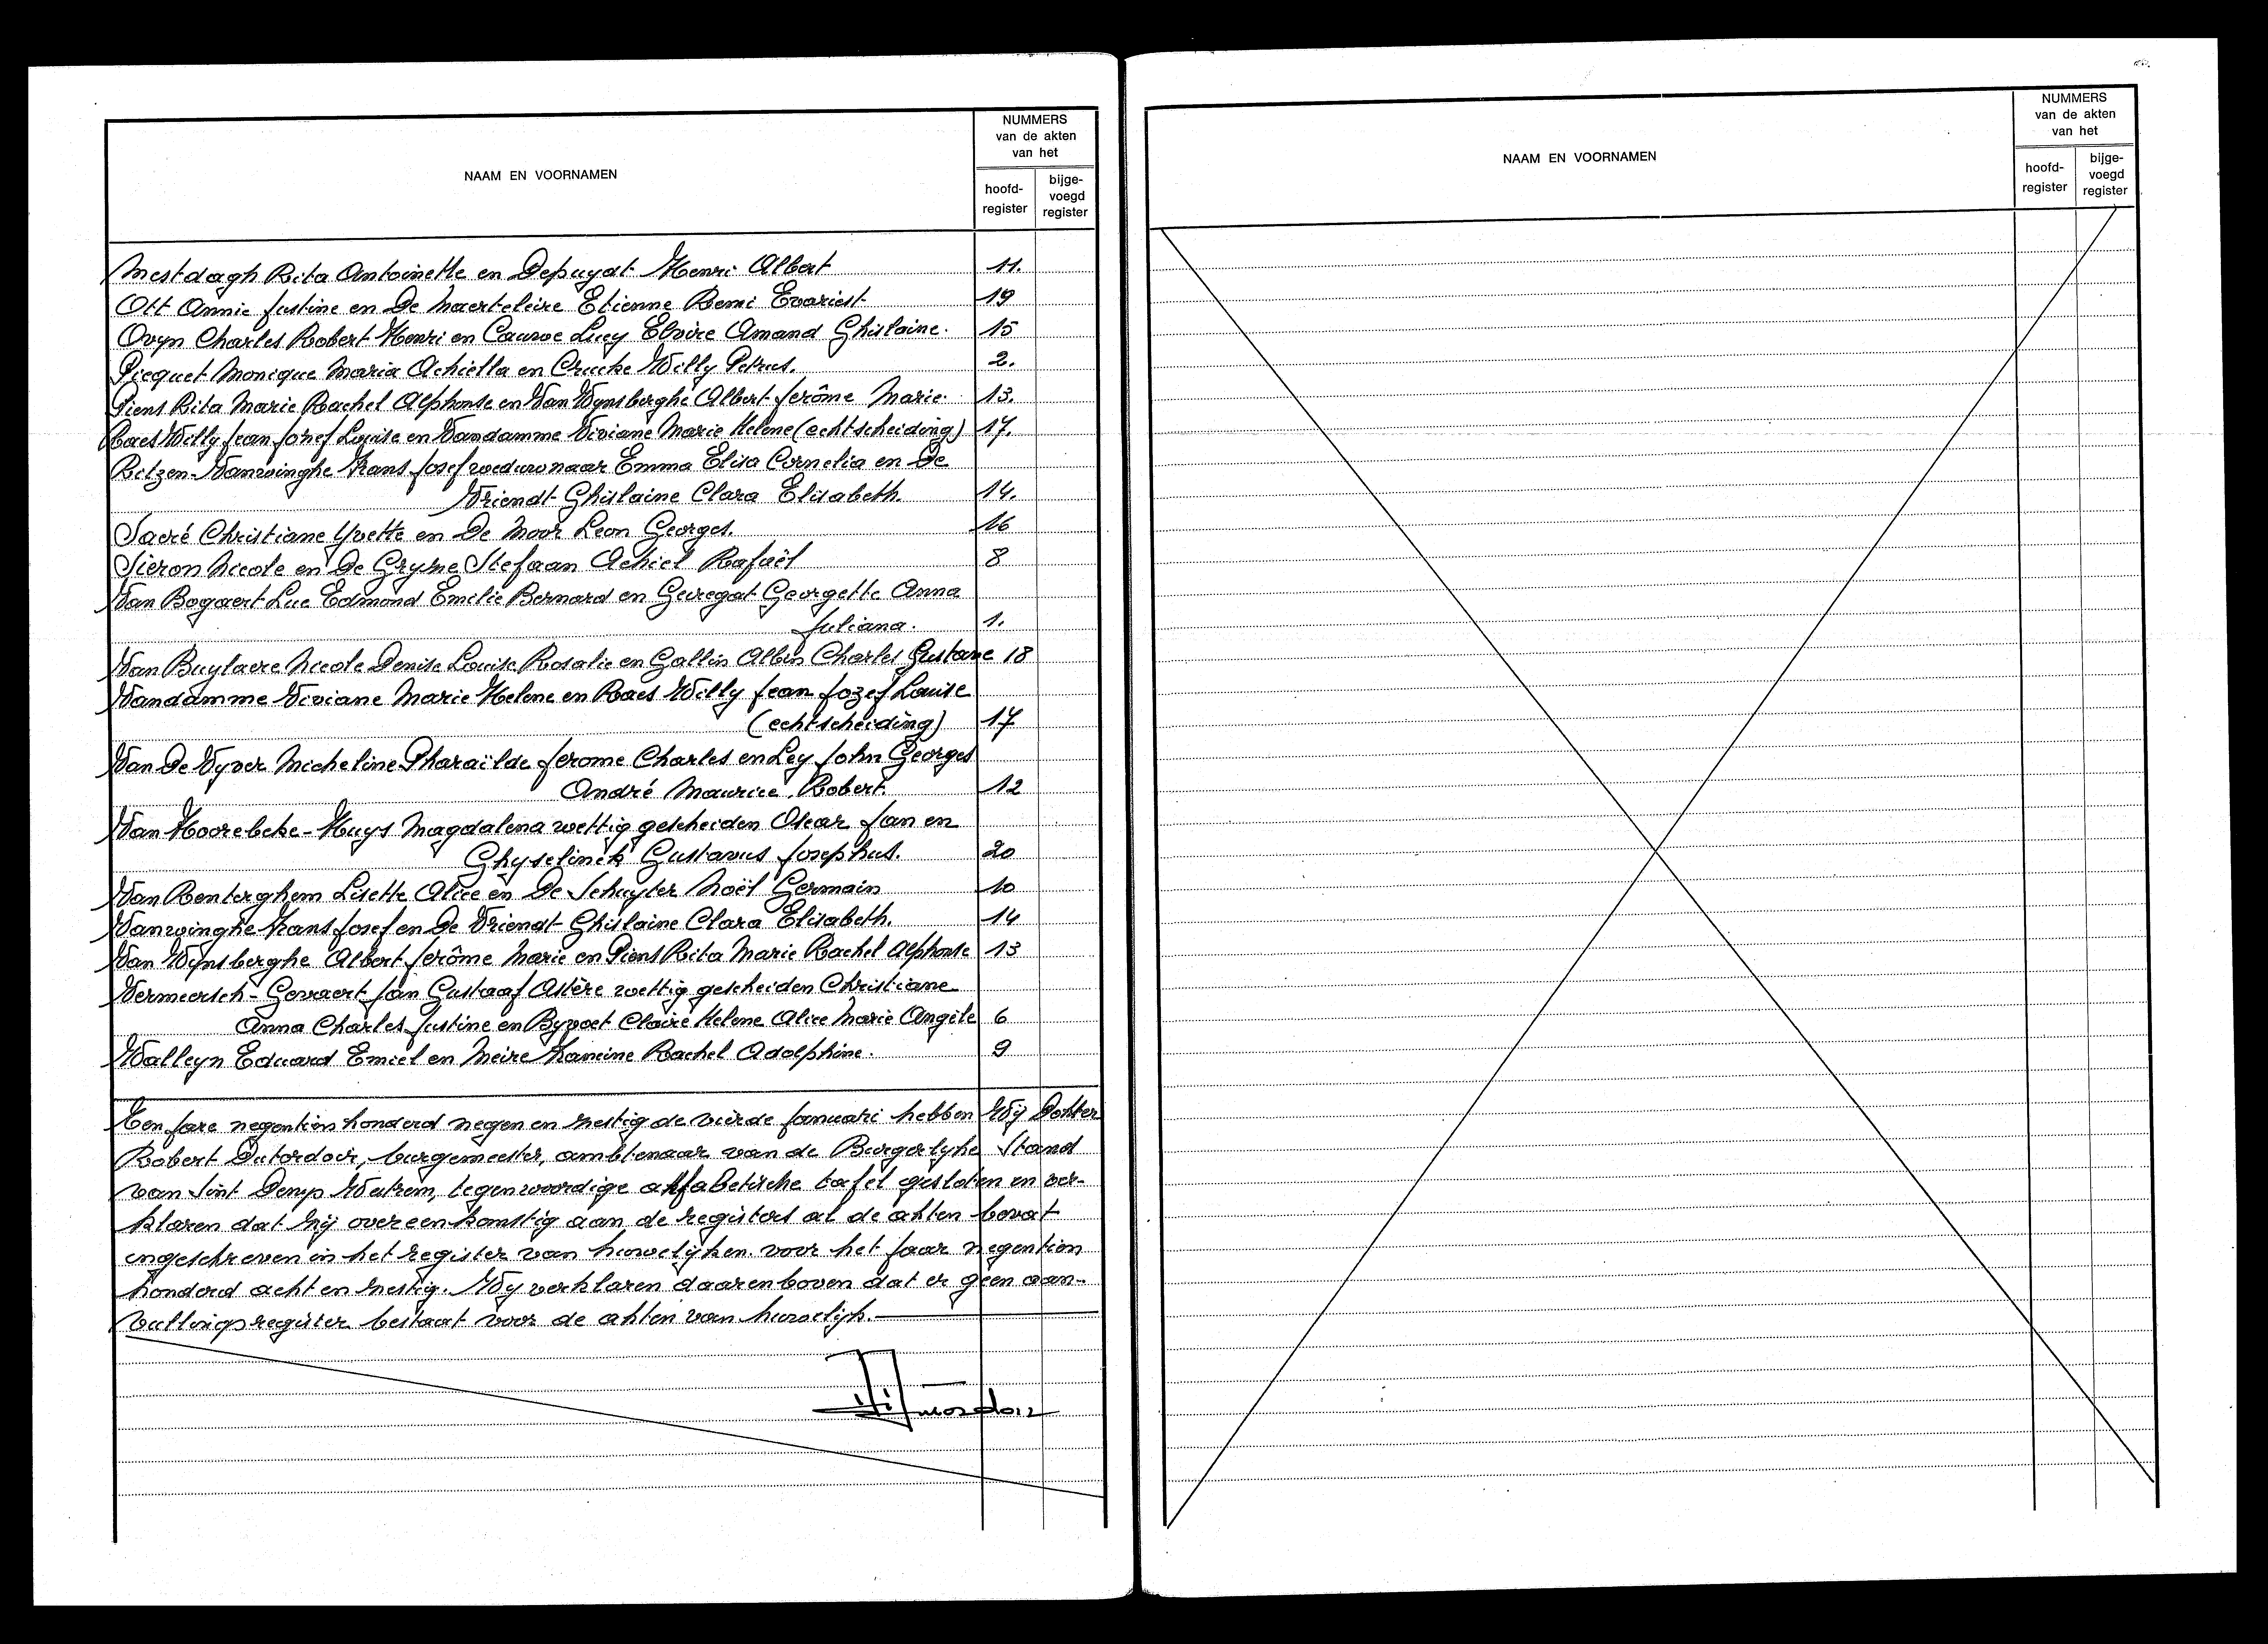 NAAM EN VOORNAMEN
NUMMERS
van de akten
van het
hoofd-
register
bijge-
voegd
register
Mestdagh Rita Antoinette en Depuydt Henri Albert 11.
Ott Annie Justine en De Maerteleire Etienne Remi Evariest 19
Ovyn Charles Robert Henri en Cauwe Lucy Elvire Amand Ghislaine. 15
Picquet Monique Maria Achiella en Crucke Willy Petrus. 2.
Piens Rita Marie Rachel Alphonse en Van Wynsberghe Albert Jerôme Marie. 13.
Raes Willy Jean Jozef Louise en Vandamme Viviane Marie Helene (echtscheiding) 17.
Retzen-Vanwinghe Frans Josef weduwnaar Emma Elisa Cornelia en De
Vriendt Ghislaine Clara Elisabeth. 14.
Sacré Christiane Yvette en De Moor Leon Georges. 16
Sieron Nicole en De Gryse Stefaan Achiel Rafaël 8
Van Bogaert Luc Edmond Emilie Bernard en Geiregat Georgette Anna
Juliana. 1.
Van Buylaere Nicole Denise Louise Rosalie en Gallin Albin Charles Gustave 18
Vandamme Viviane Marie Helene en Raes Willy Jean Jozef Louise
(echtscheiding) 17
Van De Vyver Micheline Pharaïlde Jerome Charles en Ley John Georges
André Maurice Robert. 12
Van Hoorebeke-Huys Magdalena wettig gescheiden Oscar Jan en
Ghyselinck Gustavus Josephus. 20
Van Renterghem Lisette Alice en De Schuyter Noël Germain 10
Vanwinghe Frans Josef en De Vriendt Ghislaine Clara Elisabeth. 14
Van Wynsberghe Albert Jerôme Marie en Piens Rita Marie Rachel Alphonse 13
Vermeersch-Gevaert Jan Gustaaf Astère wettig gescheiden Christiane
Anna Charles Justine en Byvoet Claire Helene Alice Marie Angèle 6
Walleyn Eduard Emiel en Meire Francine Rachel Adolphine. 9
Ten jare negentien honderd negen en zestig de vierde januari hebben Wij Dokter
Robert Dutordoir, burgemeester, ambtenaar van de Burgerlyke Stand
van Sint Denys Westrem, tegenwoordige alfabetische tafel gesloten en ver-
klaren dat zij overeenkomstig aan de registers al de akten bevat
ingeschreven in het register van huwelijken voor het jaar negentien
honderd acht en zestig. Wij verklaren daarenboven dat er geen aan-
vullingsregister bestaat voor de akten van huwelijk.
NAAM EN VOORNAMEN
NUMMERS
van de akten
van het
hoofd-
register
bijge-
voegd
register